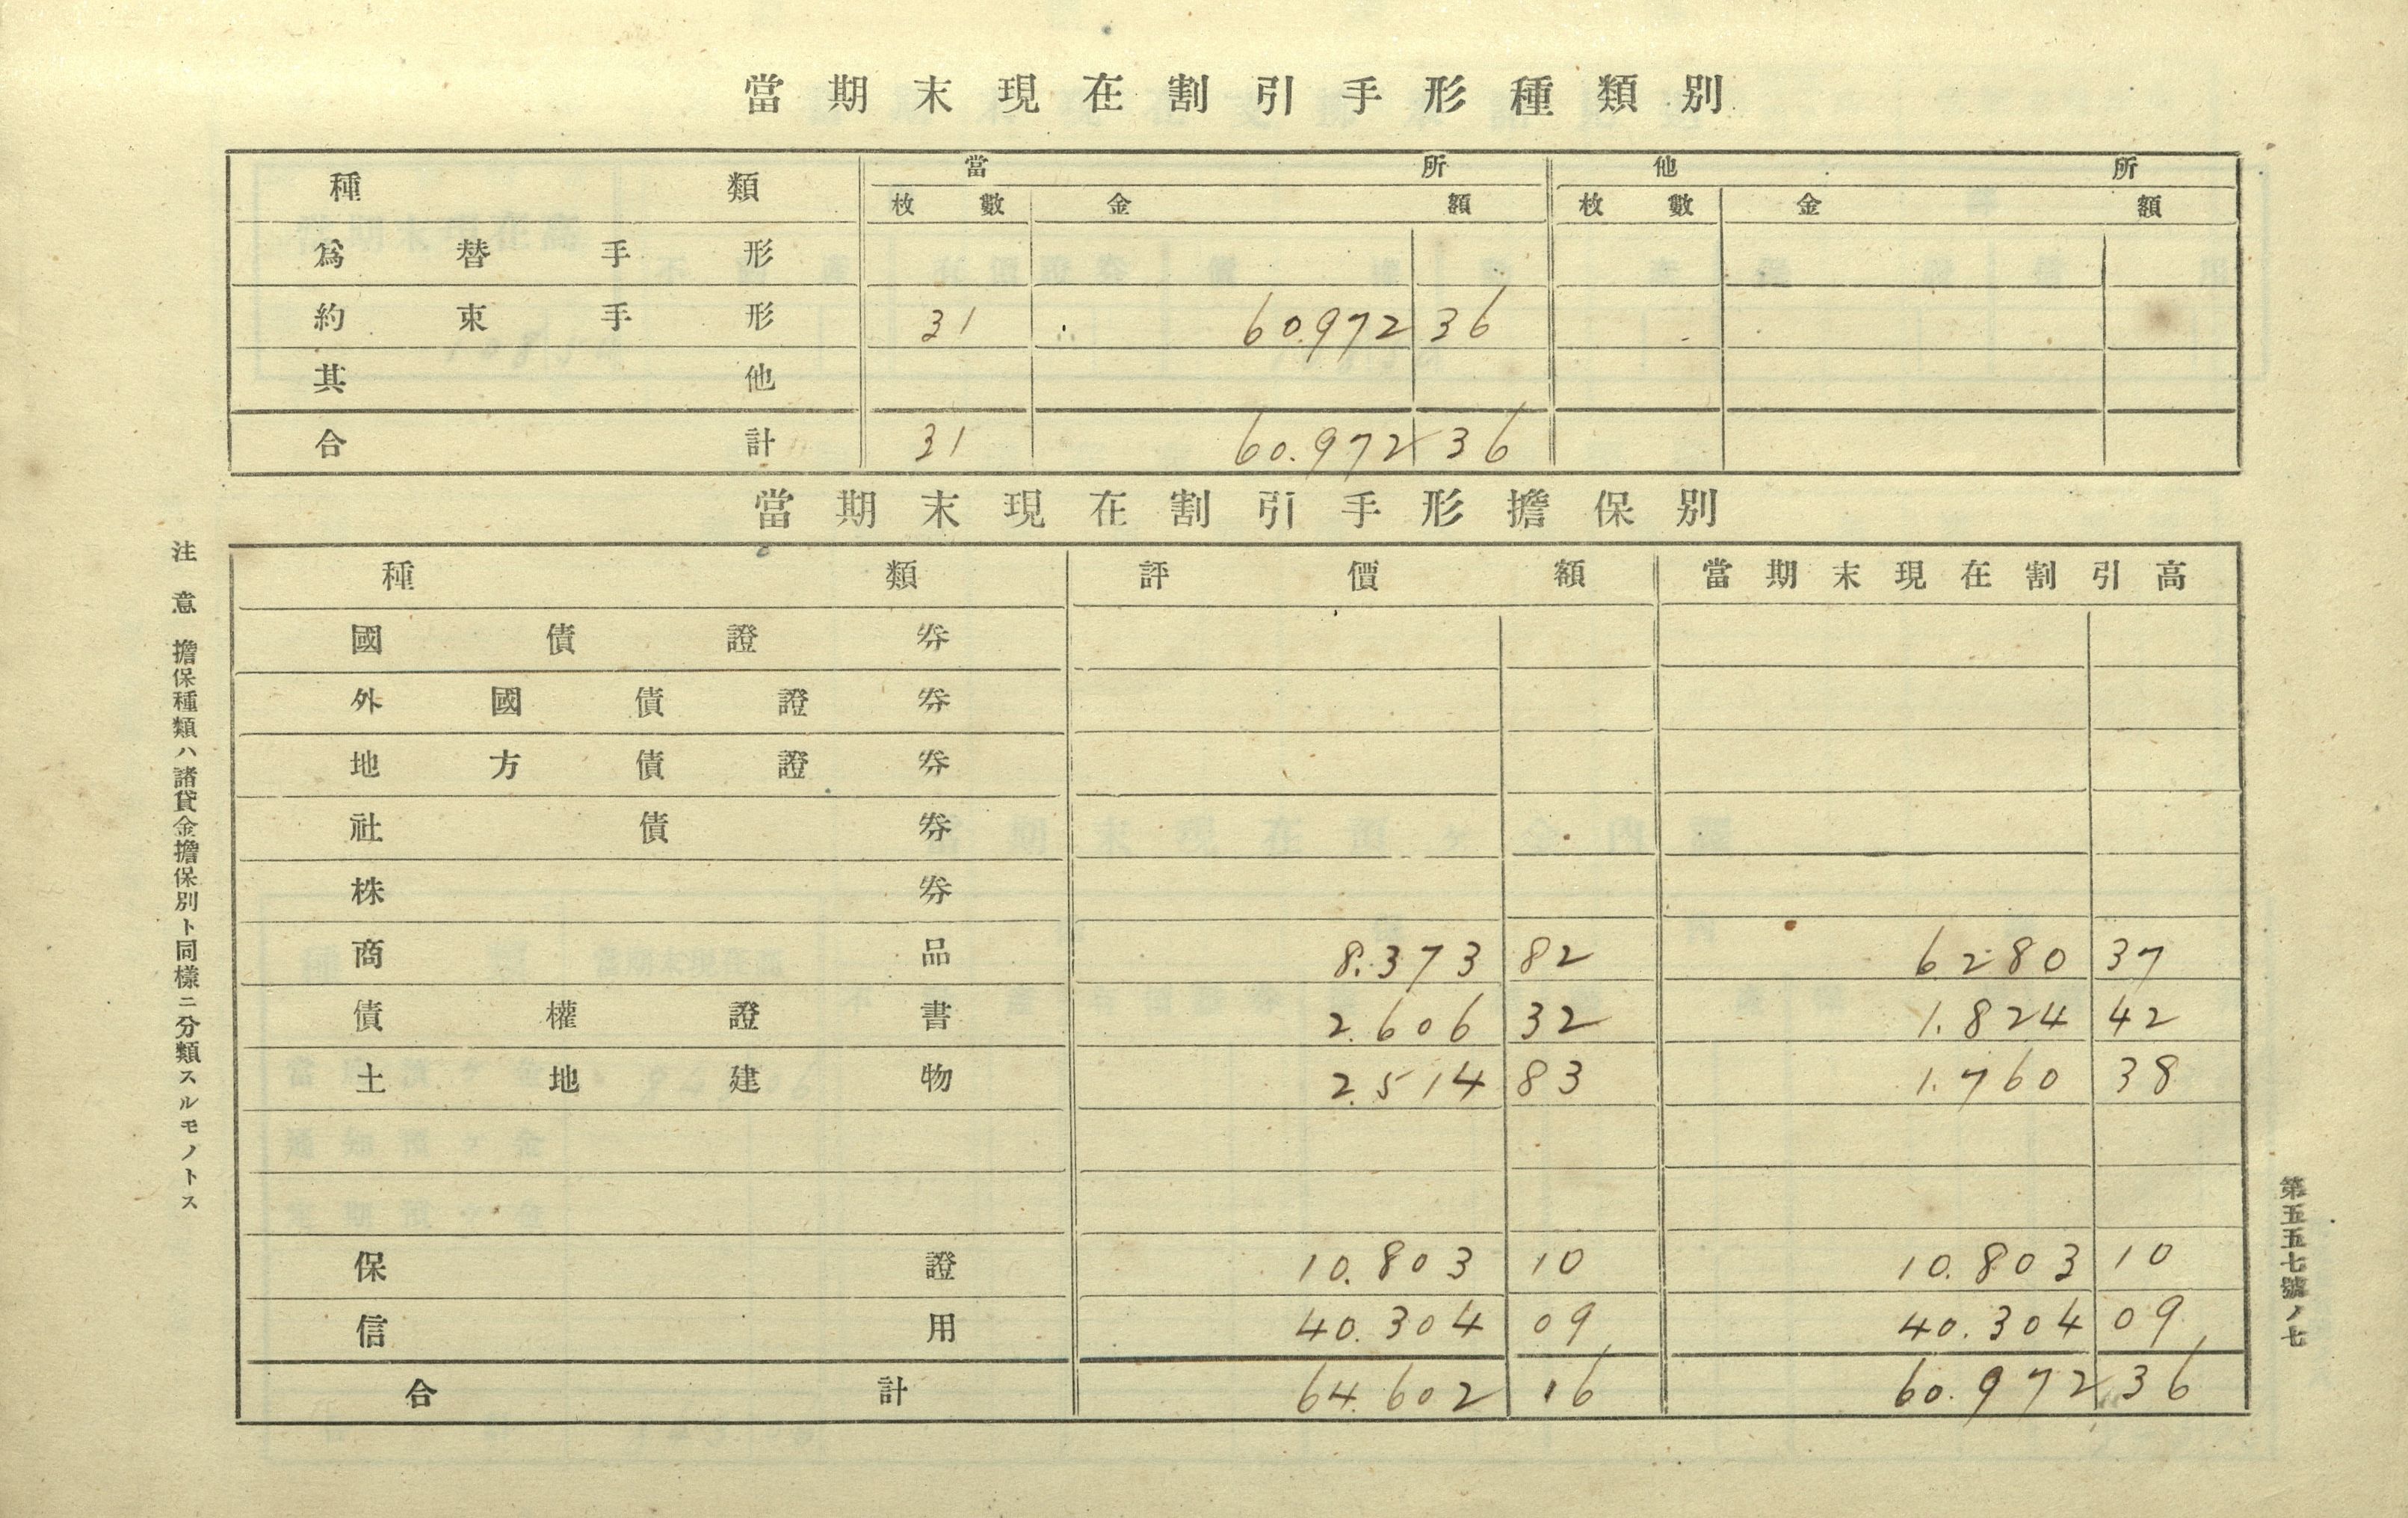 當期末現在割引手形種類別
種類 當所 他所
枚數 金額 枚數 金額
爲替手形
約束手形 31 60.972 36
其他
合計 31 60.972 36
當期末現在割引手形擔保別
種類 評價額 當期末現在割引高
國債證券
外國債證券
地方債證券
社債券
株券
商品 8.373 82 6.280 37
債權證書 2.606 32 1.824 42
土地建物 2.514 83 1.760 38
保證 10.803 10 10.803 10
信用 40.304 09 40.304 09
合計 64.602 16 60.972 36
注意 擔保種類ハ諸貸金擔保別ト同樣ニ分類スルモノトス
第五五七號ノ七